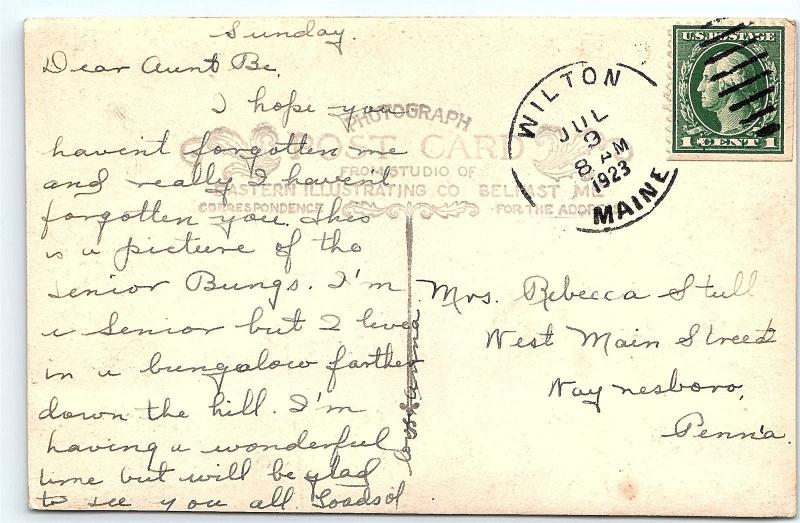 Sunday.
Dear Aunt Be,
I hope you
havent forgotten me
and really I haven't
forgotten you. This
is a picture of the
Senior Bungs. I'm
a Senior but I live
in a bungalow farther
down the hill. I'm
having a wonderful
time but will be glad
to see you all. Loads of
PHOTOGRAPH
POST CARD
FROM STUDIO OF
EASTERN ILLUSTRATING CO BELFAST ME
CORRESPONDENCE
FOR THE ADDRESS
WILTON
JUL
9
8 AM
1923
MAINE
U.S. POSTAGE
1 CENT 1
Mrs. Rebecca Stull
West Main Street
Waynesboro,
Penn'a.